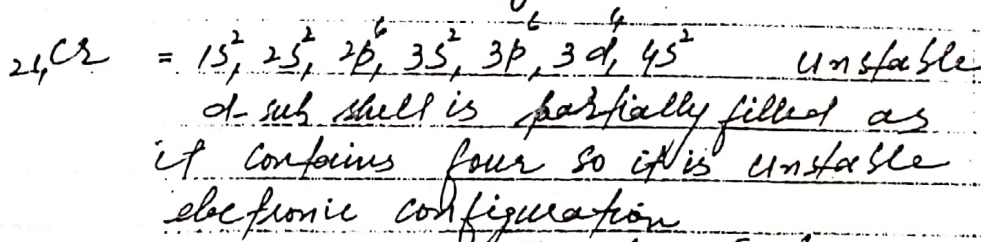 ₂₄Cr = 1s², 2s², 2p⁶, 3s², 3p⁶, 3d⁴, 4s² unstable
d-sub shell is partially filled as
it contains four so it is unstable
electronic configuration